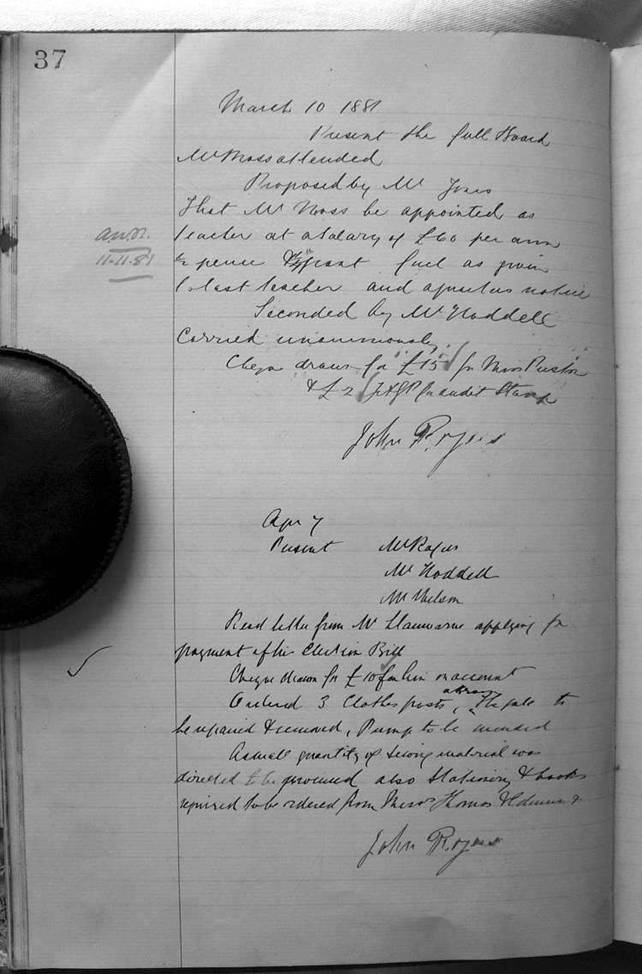 37
March 10 1881
Present the full Board
Mr Moss attended
Proposed by Mr Jones
That Mr Moss be appointed as
teacher at a Salary of £60 per ann
& pence grant fuel as given
to last teacher and a
11-11-81
Seconded by Mr Hoddell
Carried unanimously
Cheque drawn for £15 for Miss
& £2 for audit Stamp
John Rogers
Apr 7
Present Mr Rogers
Mr Hoddell
Mr Wilson
Read letter from Mr applying for
payment of his Election Bill
Cheque drawn for £10 for him on account
Ordered 3 Clothes posts, the gate to
be repaired & removed, Pump to be mended
A small quantity of Sewing material was
directed to be procured also Stationery & books
required to be ordered from Messrs Thomas
John Rogers